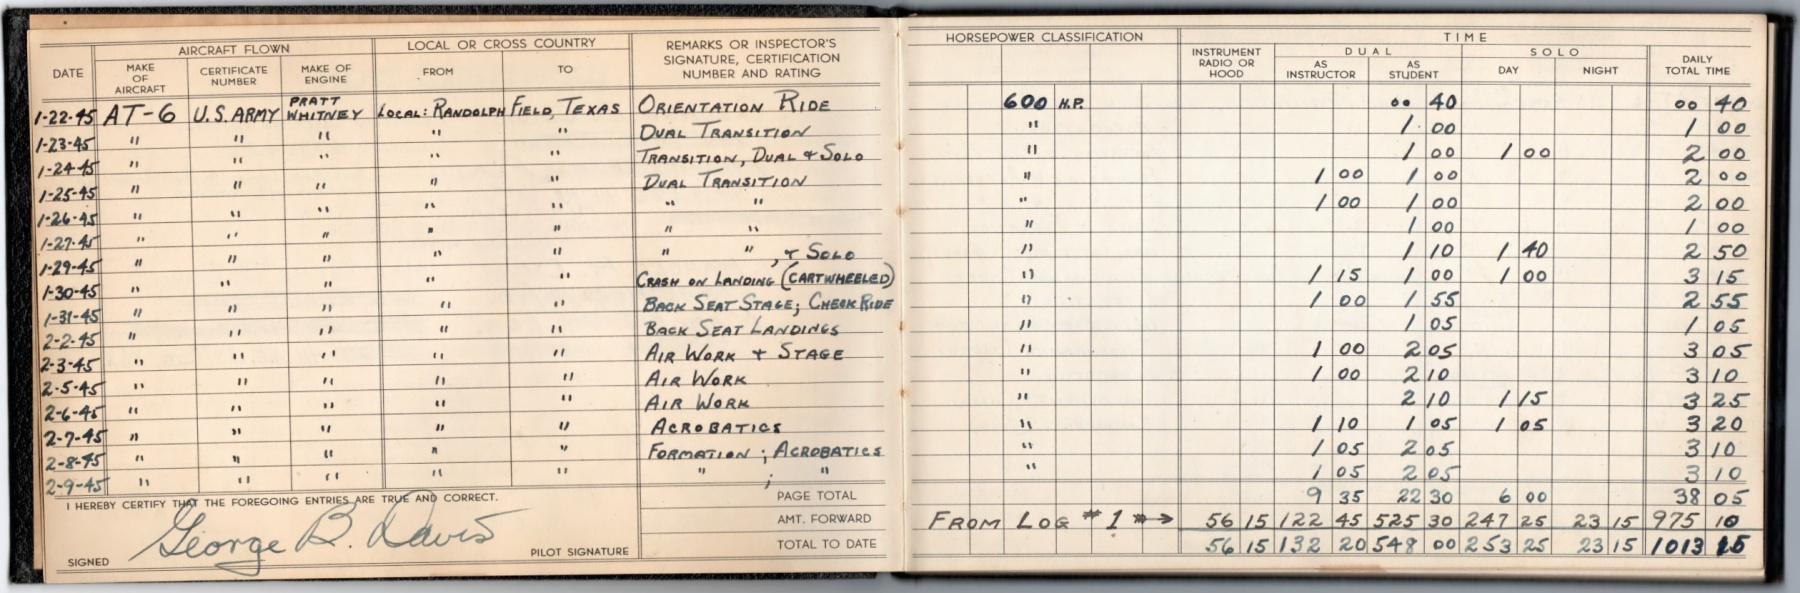 AIRCRAFT FLOWN LOCAL OR CROSS COUNTRY REMARKS OR INSPECTOR'S SIGNATURE, CERTIFICATION NUMBER AND RATING HORSEPOWER CLASSIFICATION TIME
DATE MAKE OF AIRCRAFT CERTIFICATE NUMBER MAKE OF ENGINE FROM TO INSTRUMENT RADIO OR HOOD DUAL AS INSTRUCTOR AS STUDENT SOLO DAY NIGHT DAILY TOTAL TIME
1-22-45 AT-6 U.S. ARMY PRATT WHITNEY LOCAL: RANDOLPH FIELD, TEXAS ORIENTATION RIDE 600 H.P. 00 40 00 40
1-23-45 " " " " " DUAL TRANSITION " 1 00 1 00
1-24-45 " " " " " TRANSITION, DUAL & SOLO " 1 00 1 00 2 00
1-25-45 " " " " " DUAL TRANSITION " 1 00 1 00 2 00
1-26-45 " " " " " " " " 1 00 1 00 2 00
1-27-45 " " " " " " " " 1 00 1 00
1-29-45 " " " " " " ", & SOLO " 1 10 1 40 2 50
1-30-45 " " " " " CRASH ON LANDING (CARTWHEELED) " 1 15 1 00 1 00 3 15
1-31-45 " " " " " BACK SEAT STAGE; CHECK RIDE " 1 00 1 55 2 55
2-2-45 " " " " " BACK SEAT LANDINGS " 1 05 1 05
2-3-45 " " " " " AIR WORK + STAGE " 1 00 2 05 3 05
2-5-45 " " " " " AIR WORK " 1 00 2 10 3 10
2-6-45 " " " " " AIR WORK " 2 10 1 15 3 25
2-7-45 " " " " " ACROBATICS " 1 10 1 05 1 05 3 20
2-8-45 " " " " " FORMATION; ACROBATICS " 1 05 2 05 3 10
2-9-45 " " " " " " ; " " 1 05 2 05 3 10
I HEREBY CERTIFY THAT THE FOREGOING ENTRIES ARE TRUE AND CORRECT. PAGE TOTAL 9 35 22 30 6 00 38 05
AMT. FORWARD FROM LOG #1 → 56 15 122 45 525 30 247 25 23 15 975 10
SIGNED George B. Davis PILOT SIGNATURE TOTAL TO DATE 56 15 132 20 548 00 253 25 23 15 1013 15